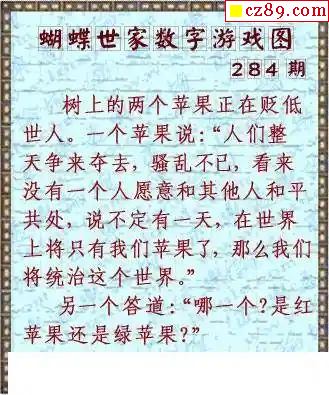 cz89.com
蝴蝶世家数字游戏图
284期
树上的两个苹果正在贬低
世人。一个苹果说:“人们整
天争来夺去，骚乱不已，看来
没有一个人愿意和其他人和平
共处，说不定有一天，在世界
上将只有我们苹果了，那么我们
将统治这个世界。”
另一个答道:“哪一个?是红
苹果还是绿苹果?”